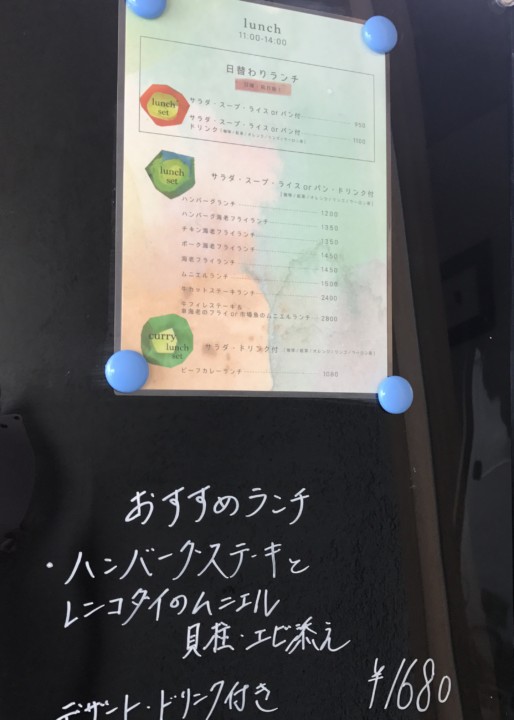 lunch
11:00-14:00
日替わりランチ
lunch set
サラダ・スープ・ライス or パン付 950
サラダ・スープ・ライス or パン付
ドリンク 1100
lunch set
サラダ・スープ・ライス or パン・ドリンク付
ハンバーグランチ 1200
ハンバーグ海老フライランチ 1350
チキン海老フライランチ 1350
ポーク海老フライランチ 1450
海老フライランチ 1450
ムニエルランチ 1500
牛カットステーキランチ 2400
牛フィレステーキ&
有頭海老のフライ or 市場魚のムニエルランチ 2800
curry lunch set
サラダ・ドリンク付
ビーフカレーランチ 1080
おすすめランチ
・ハンバーグステーキと
レンコダイのムニエル
貝柱・エビ添え
デザート・ドリンク付き ¥1680